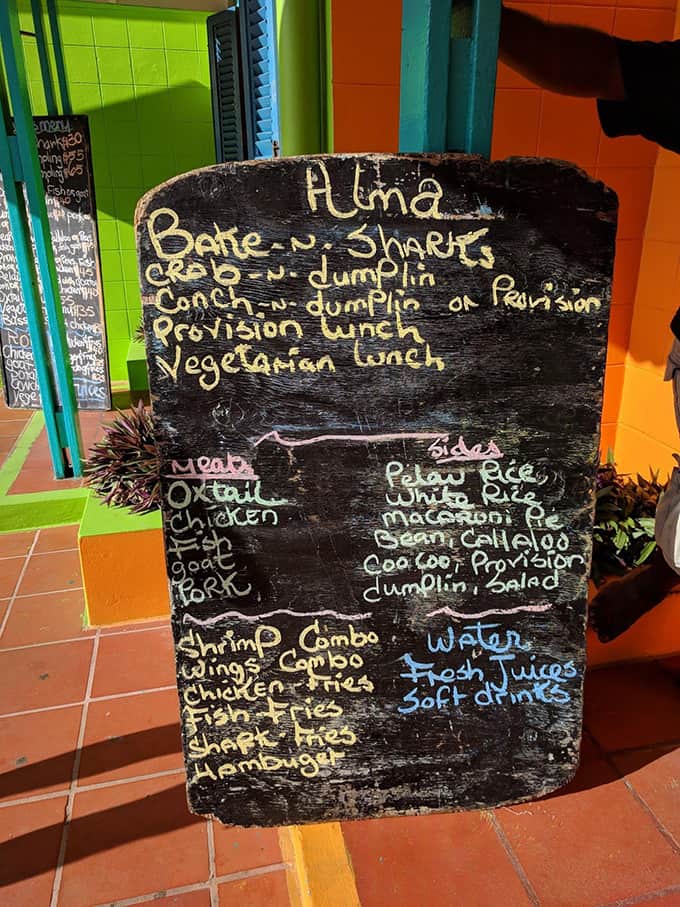 Alma
Bake-n-Sharks
Crab-n-dumplin
Conch-n-dumplin or Provision
Provision Lunch
Vegetarian Lunch
Meats
Oxtail
Chicken
Fish
goat
Pork
Sides
Pelau Rice
White Rice
Macaroni Pie
Bean, Callaloo
Coo Coo, Provision
dumplin, Salad
Shrimp Combo
Wings Combo
Chicken-fries
Fish-fries
Shark fries
Hambuger
Water
Fresh Juices
Soft drinks